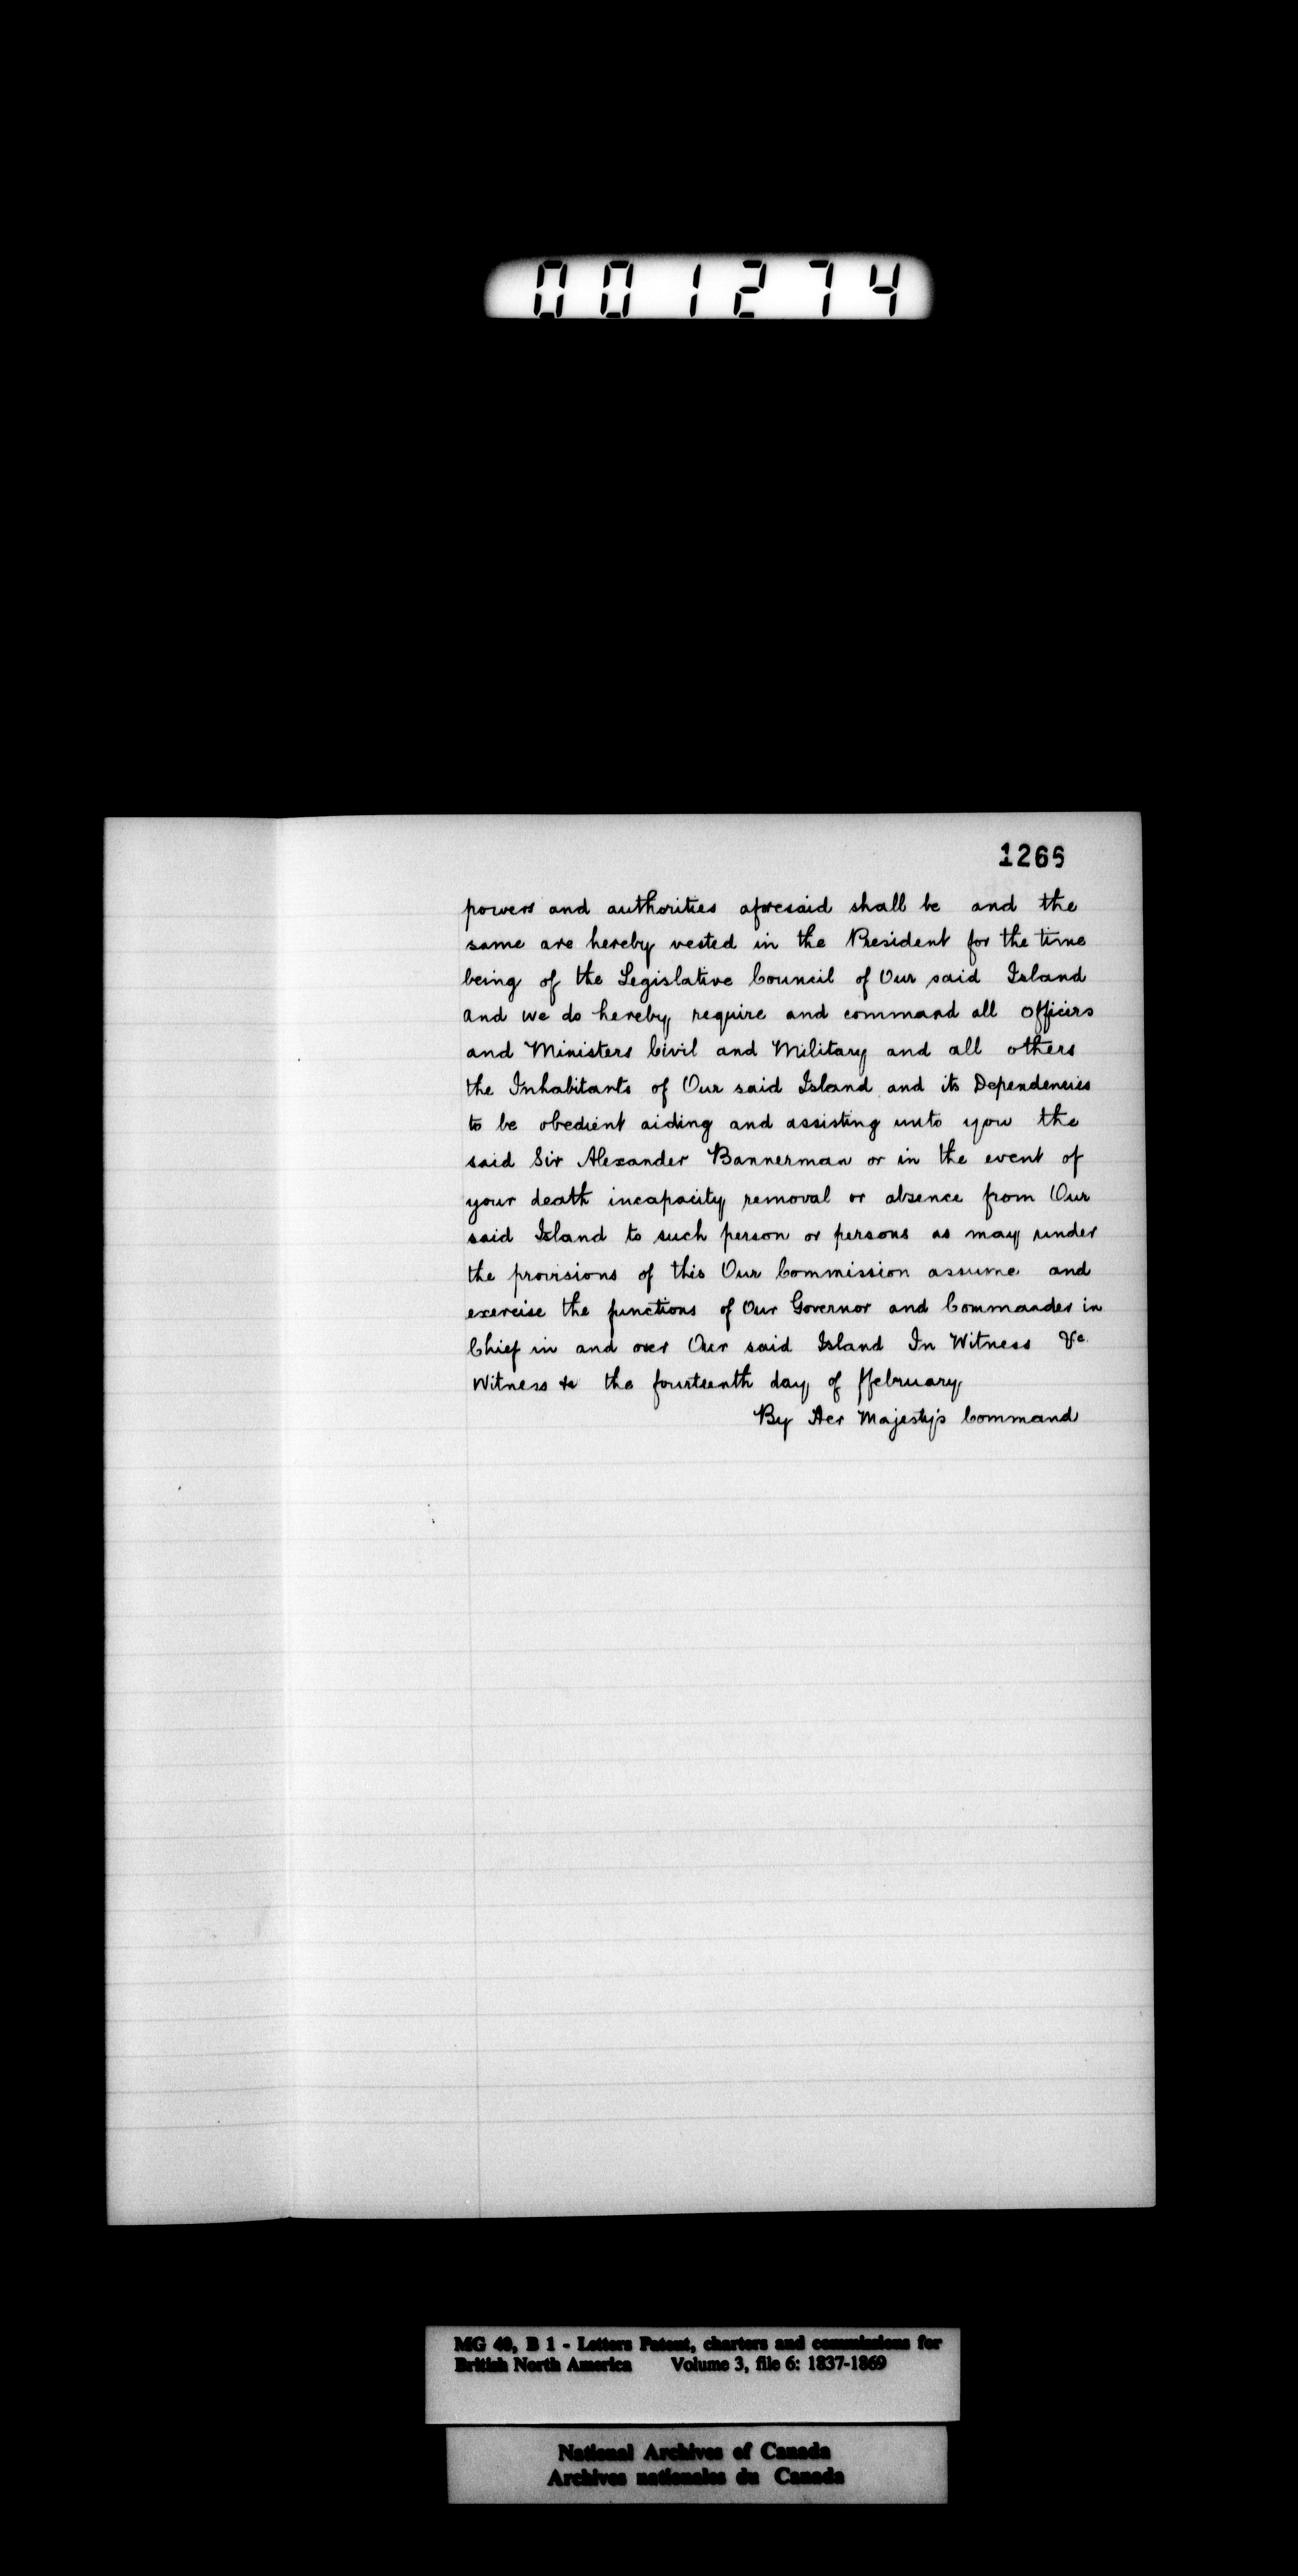 001274
1266
powers and authorities aforesaid shall be and the
same are hereby vested in the President for the time
being of the Legislative Council of Our said Island
and we do hereby require and command all Officers
and Ministers Civil and Military and all others
the Inhabitants of Our said Island and its Dependencies
to be obedient aiding and assisting unto you the
said Sir Alexander Bannerman or in the event of
your death incapacity removal or absence from Our
said Island to such person or persons as may under
the provisions of this Our Commission assume and
exercise the functions of Our Governor and Commander in
Chief in and over Our said Island In Witness &c
Witness &c the fourteenth day of ffebruary
By Her Majesty's Command
MG 40, B 1 - Letters Patent, charters and commissions for
British North America Volume 3, file 6: 1837-1869
National Archives of Canada
Archives nationales du Canada